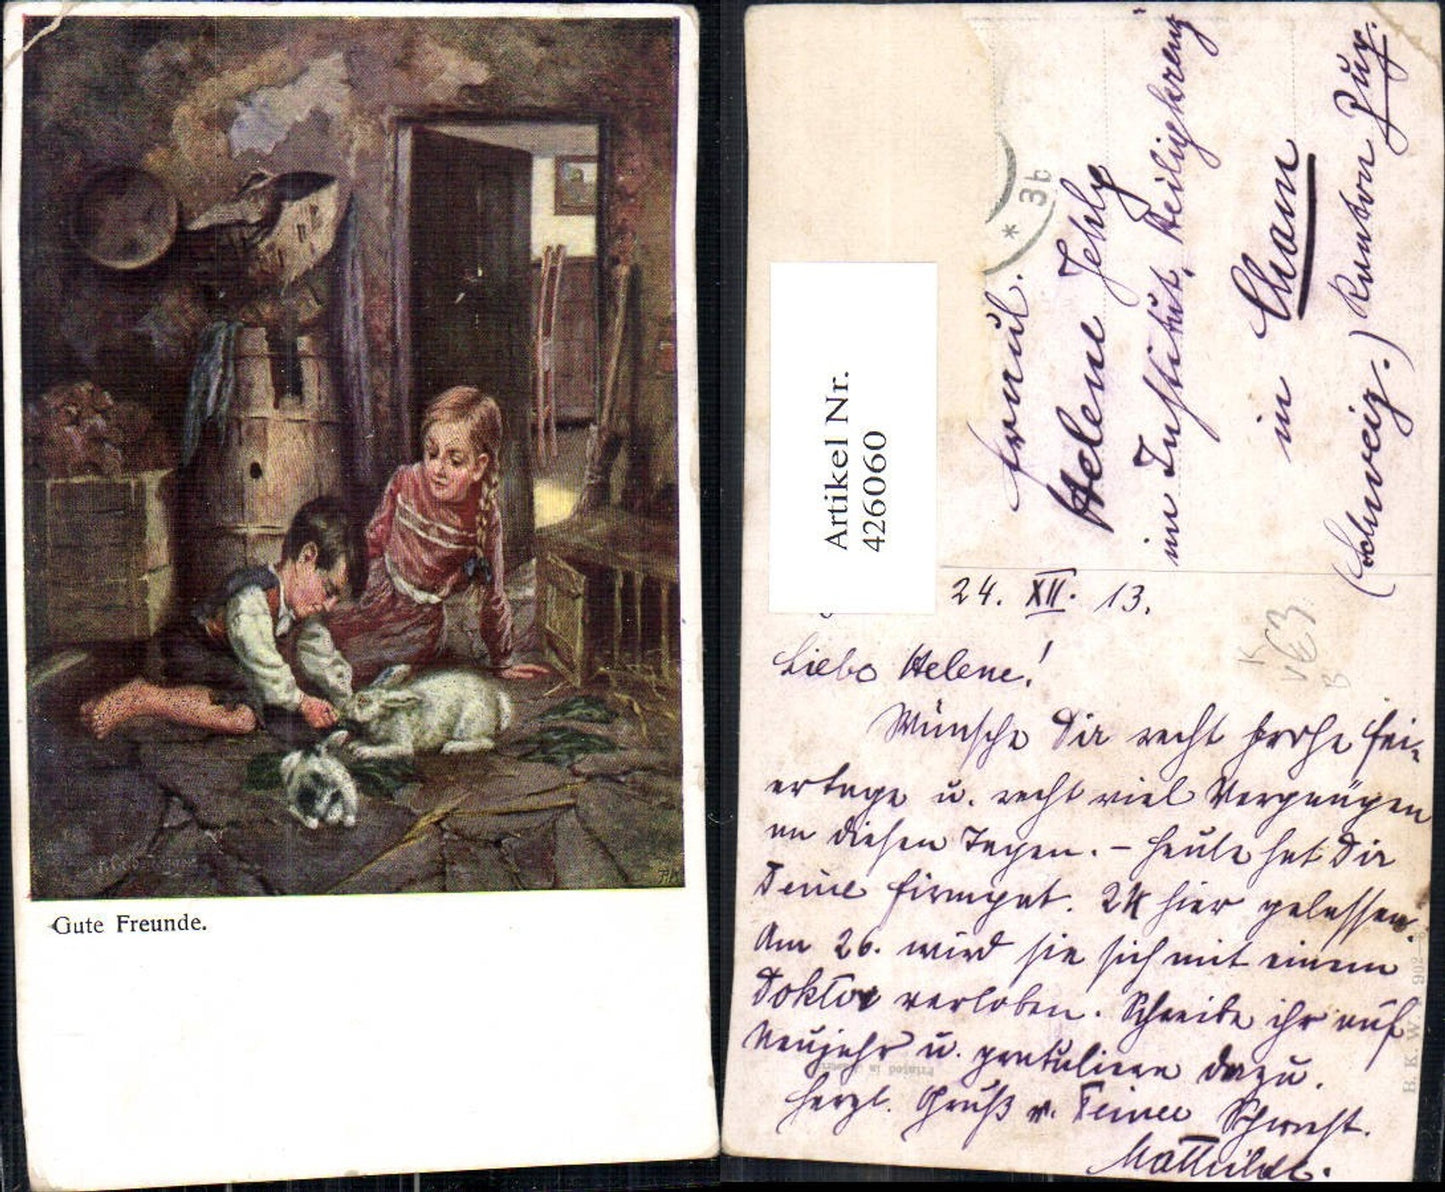 Gute Freunde.
Artikel Nr.
426060
* 3b
Fräul.
Helene Jehly
im Institut, Heiligkreuz
in Cham
(Schweiz.) Kanton Zug.
24. XII. 13.
Liebe Helene!
Wünsche Dir recht frohe Fei-
ertage u. recht viel Vergnügen
an diesen Tagen. – Heute hat Dir
Deine Firmpat. 2 K hier gelassen.
Am 26. wird sie sich mit einem
Doktor verloben. Schreibe ihr auf
Neujahr u. gratuliere dazu.
Herzl. Gruß v. Deiner Schwest.
Mathilde.
B. K. W. I. 902-
Printed in